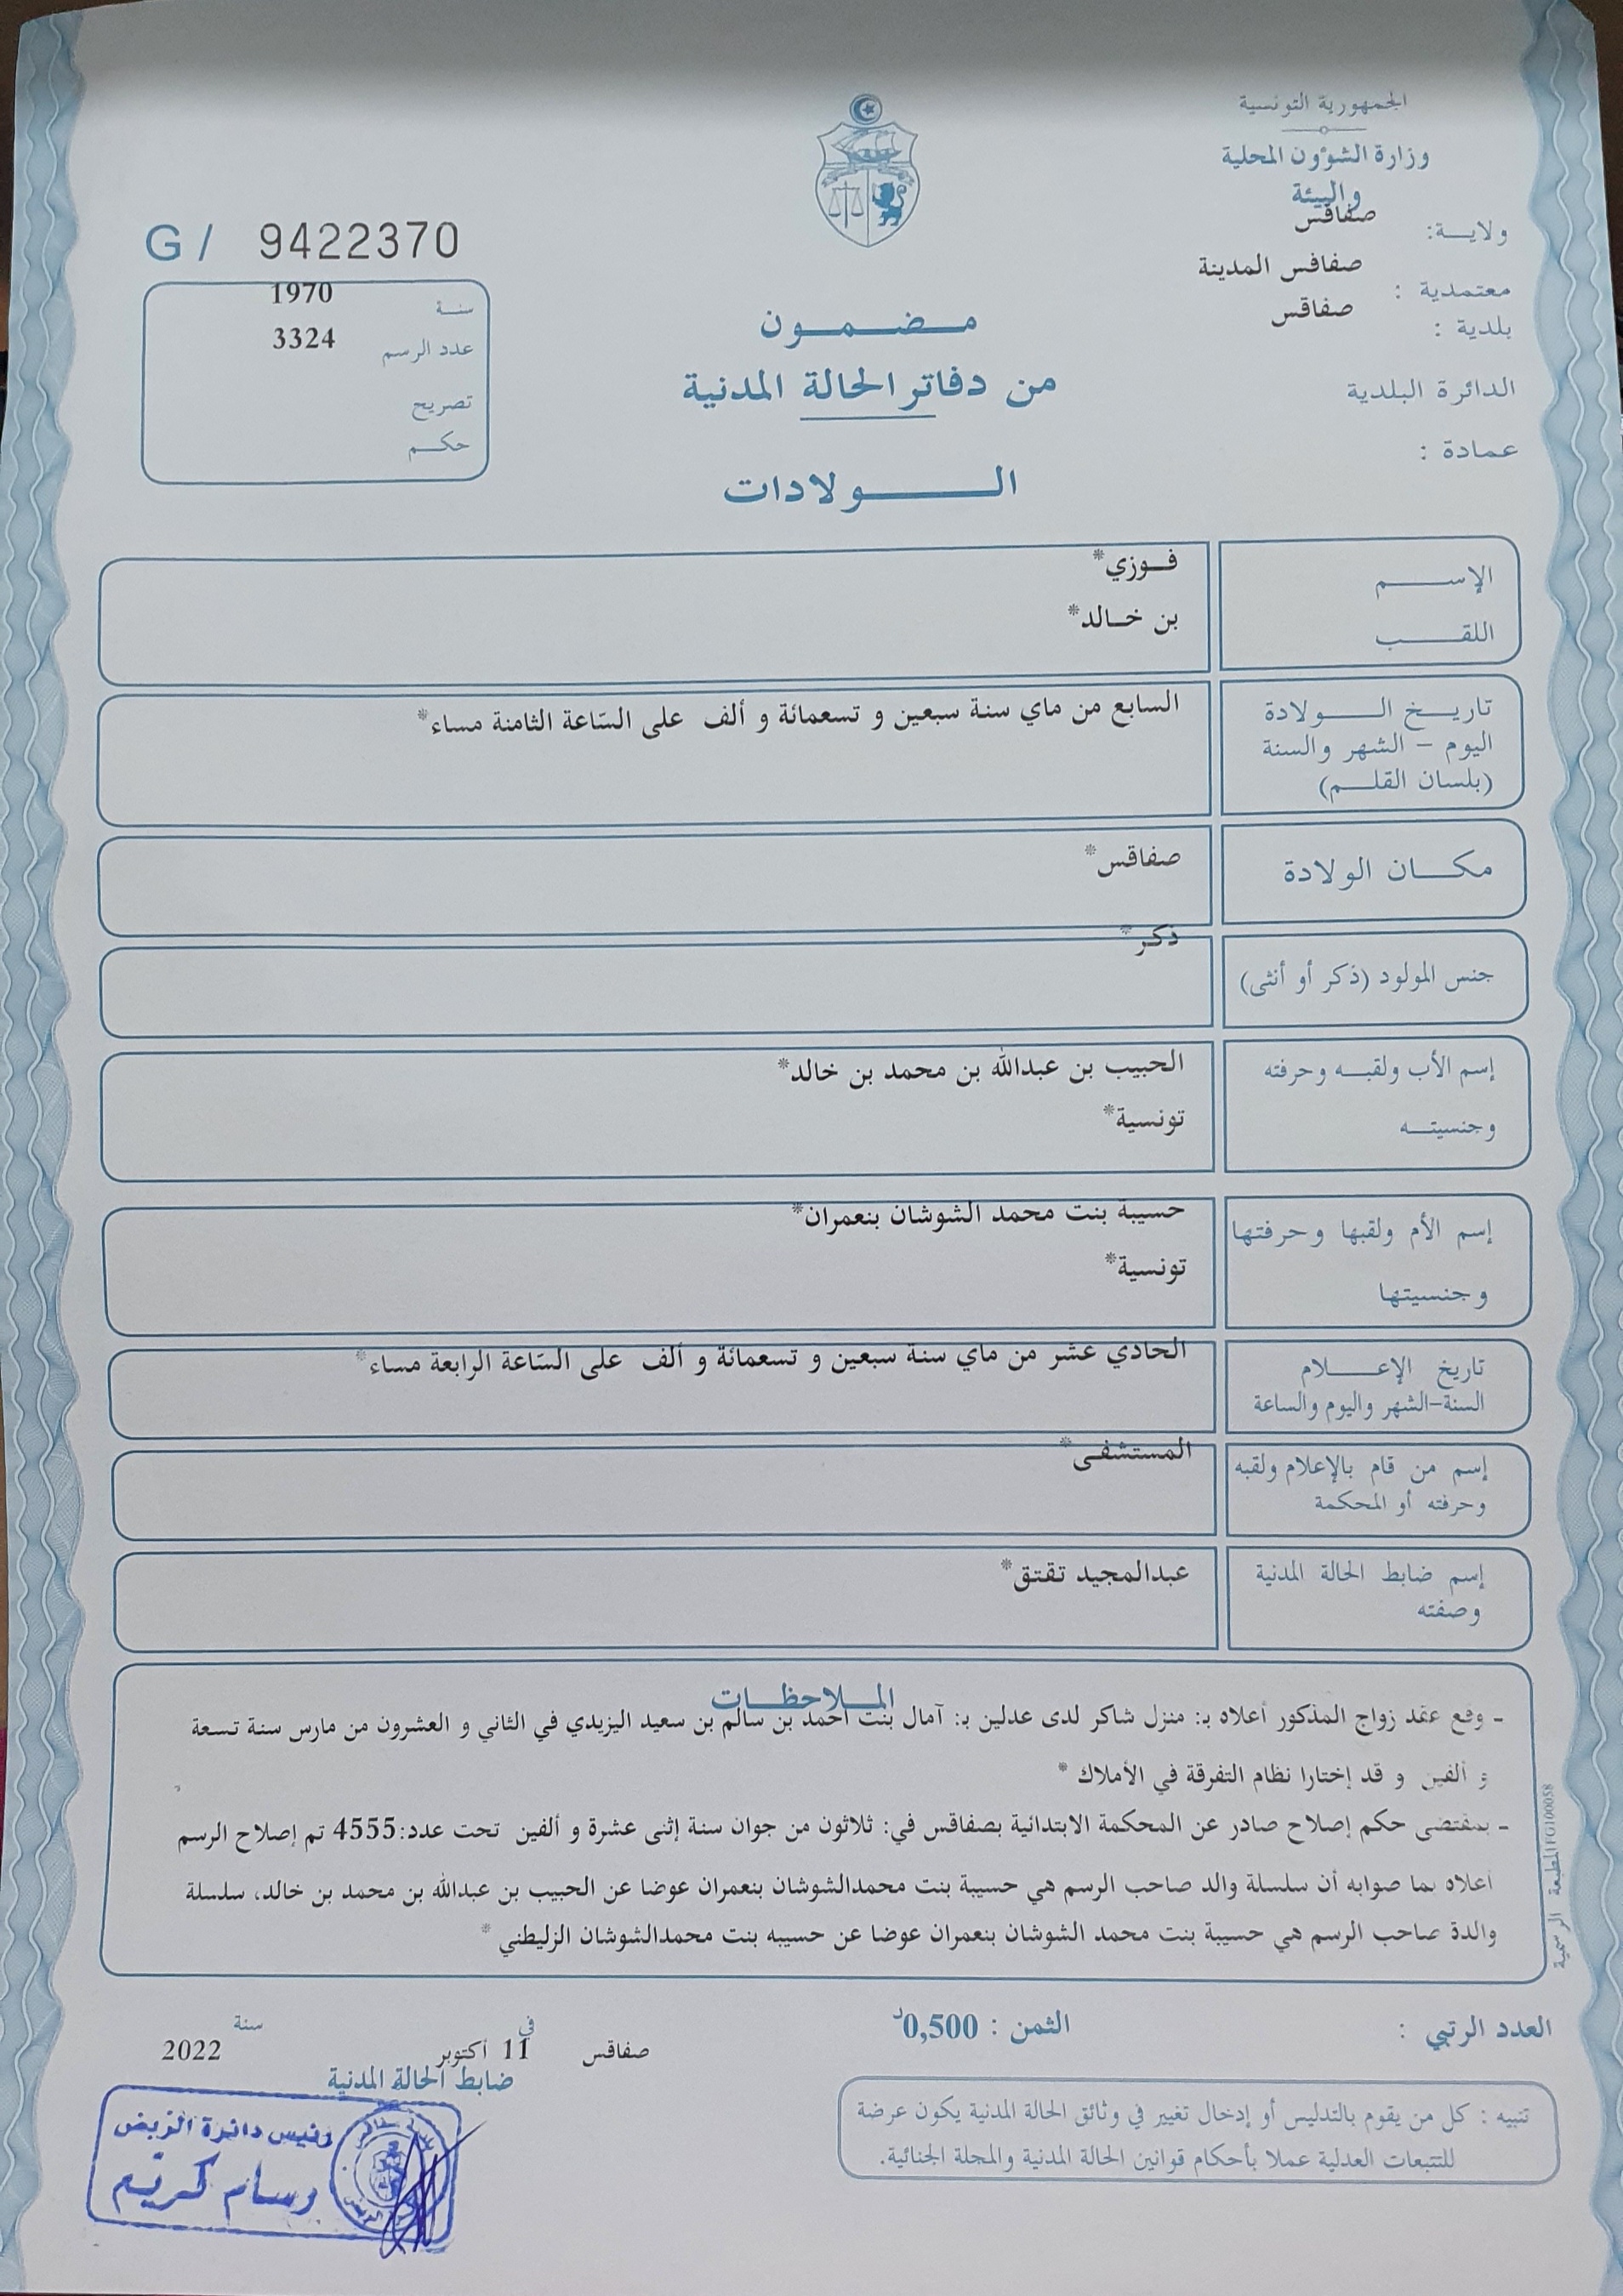 الجمهورية التونسية
وزارة الشؤون المحلية
والبيئة
ولايـة: صفاقس
معتمدية : صفاقس المدينة
بلدية : صفاقس
الدائرة البلدية
عمادة :
G / 9422370
سنة 1970
عدد الرسم 3324
تصريح
حكم
مضمون
من دفاتر الحالة المدنية
الولادات
الإسم فوزي*
اللقب بن خالد*
تاريخ الولادة السابع من ماي سنة سبعين و تسعمائة و ألف على السّاعة الثامنة مساء*
اليوم - الشهر والسنة
(بلسان القلم)
مكان الولادة صفاقس*
جنس المولود (ذكر أو أنثى) ذكر*
إسم الأب ولقبه وحرفته الحبيب بن عبدالله بن محمد بن خالد*
وجنسيته تونسية*
إسم الأم ولقبها وحرفتها حسيبة بنت محمد الشوشان بنعمران*
وجنسيتها تونسية*
تاريخ الإعلام الحادي عشر من ماي سنة سبعين و تسعمائة و ألف على السّاعة الرابعة مساء*
السنة-الشهر واليوم والساعة
إسم من قام بالإعلام ولقبه المستشفى*
وحرفته أو المحكمة
إسم ضابط الحالة المدنية عبدالمجيد تقتق*
وصفته
الملاحظات
- وقع عقد زواج المذكور أعلاه بـ: منزل شاكر لدى عدلين بـ: آمال بنت احمد بن سالم بن سعيد اليزيدي في الثاني و العشرون من مارس سنة تسعة
و ألفين و قد إختارا نظام التفرقة في الأملاك *
- بمقتضى حكم إصلاح صادر عن المحكمة الابتدائية بصفاقس في: ثلاثون من جوان سنة إثنى عشرة و ألفين تحت عدد:4555 تم إصلاح الرسم
اعلاه بما صوابه أن سلسلة والد صاحب الرسم هي حسيبة بنت محمدالشوشان بنعمران عوضا عن الحبيب بن عبدالله بن محمد بن خالد، سلسلة
والدة صاحب الرسم هي حسيبة بنت محمد الشوشان بنعمران عوضا عن حسيبه بنت محمدالشوشان الزليطني *
المطبعة الرسمية FG100058
العدد الرتبي :
الثمن : 0,500د
صفاقس في 11 أكتوبر سنة 2022
ضابط الحالة المدنية
رئيس دائرة الربض
وسام كريم
تنبيه : كل من يقوم بالتدليس أو إدخال تغيير في وثائق الحالة المدنية يكون عرضة
للتتبعات العدلية عملا بأحكام قوانين الحالة المدنية والمجلة الجنائية.